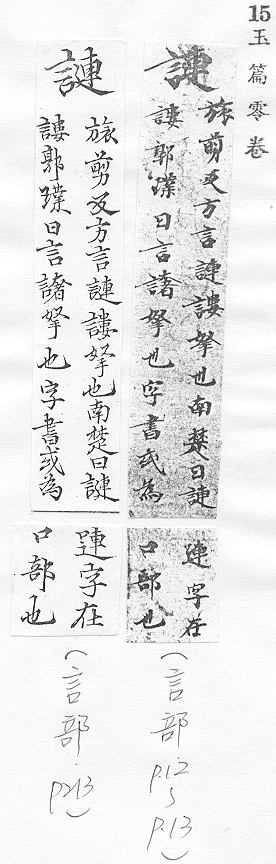 15
玉篇零卷
謰
旅剪反方言謰謱拏也南楚曰謰
謱郭璞曰言譇拏也字書或為
嗹字在
口部也
(言部 p.12〜p.13)
謰
旅剪反方言謰謱拏也南楚曰謰
謱郭璞曰言譇拏也字書或為
嗹字在
口部也
(言部・p213)